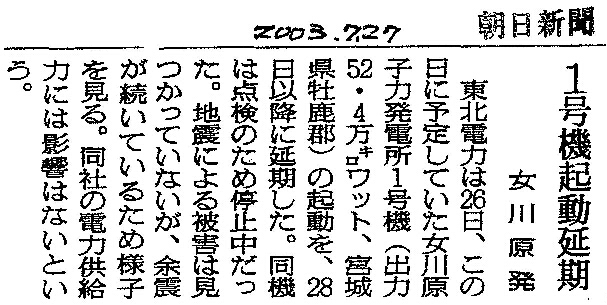 朝日新聞
2003.7.27
1号機起動延期
女川原発
東北電力は26日、この
日に予定していた女川原
子力発電所1号機(出力
52・4万㌔ワット、宮城
県牡鹿郡)の起動を、28
日以降に延期した。同機
は点検のため停止中だっ
た。地震による被害は見
つかっていないが、余震
が続いているため様子
を見る。同社の電力供給
力には影響はないとい
う。